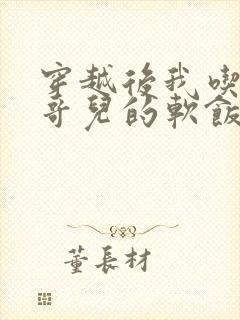 穿越後我喫
哥兒的軟飯
董長材